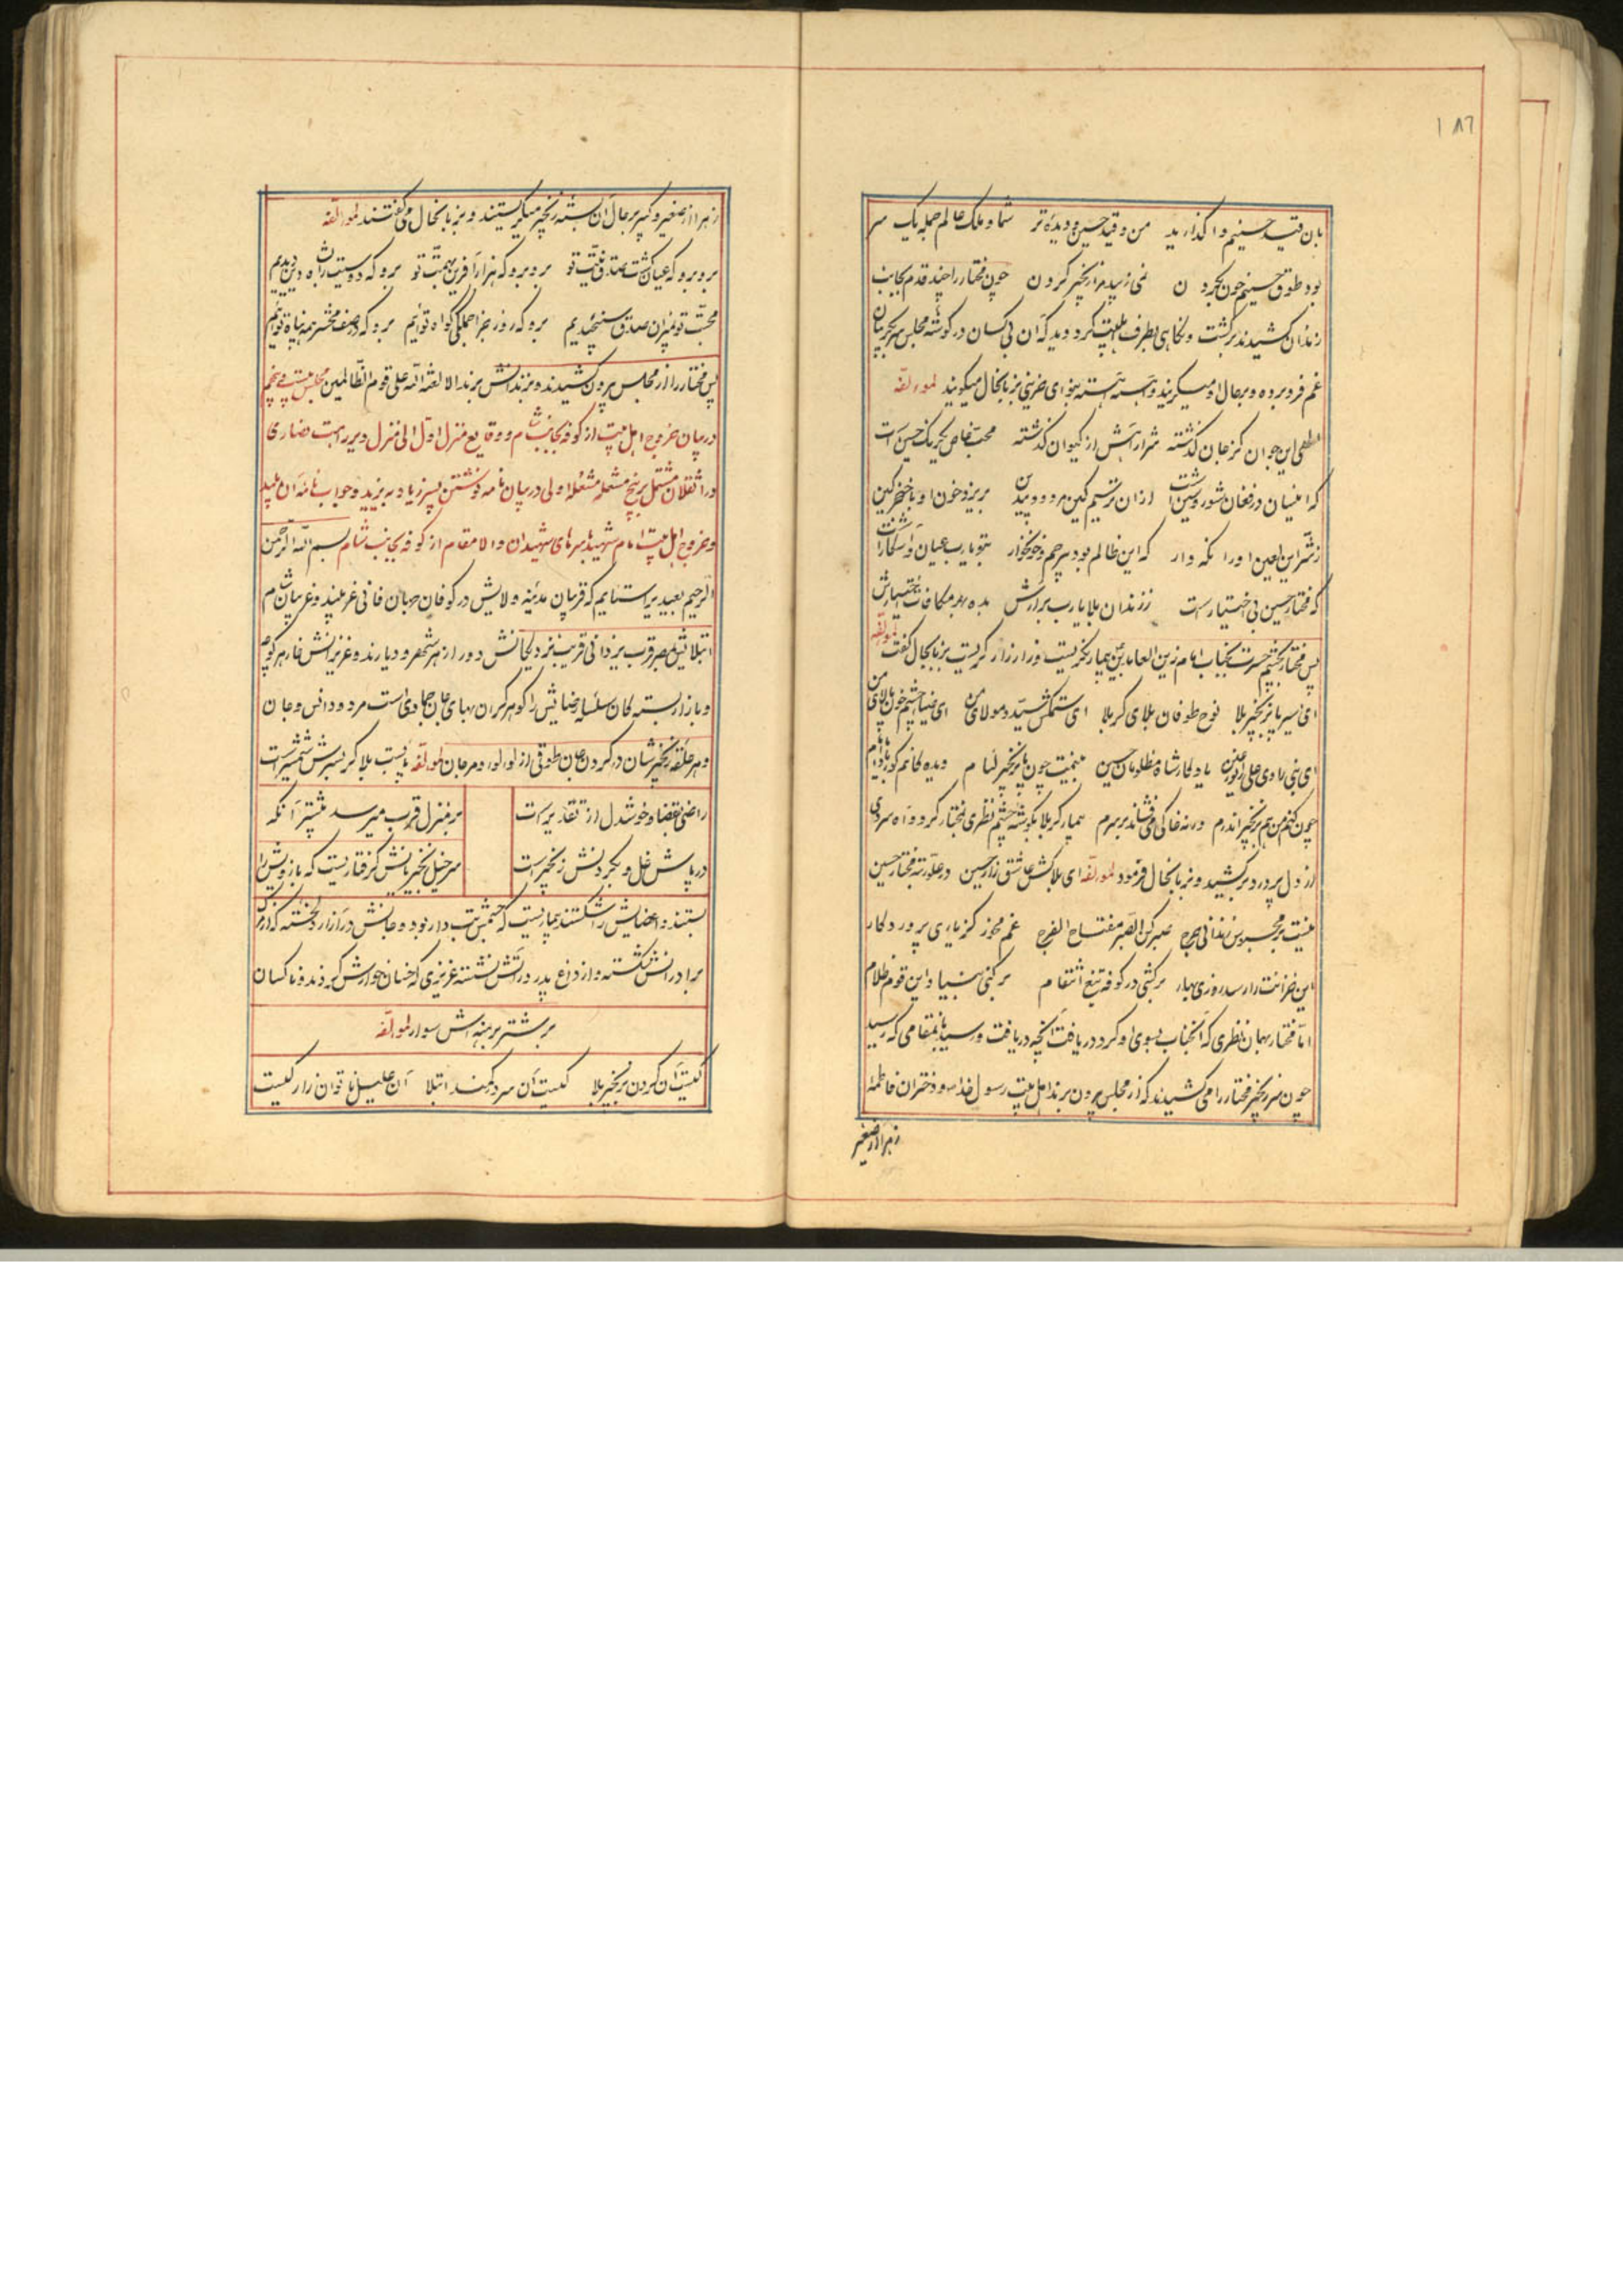 ۱۸۶
بان قید حسینیم وا گذارید من و قید حسین و دیدهٔ تر شما و ملک عالم جمله یک سر
بود طوق حسینم چون بگردن نمی زیبد مرا زنجیر گردن چون مختار را چند قدم بجانب
زندان کشیدند برگشت و نگاهی بطرف اهلبیت کرد دید که آن بی کسان در گوشهٔ مجلس سر بگریبان
غم فرو برده و بر حال او میگریند و آهسته آهسته بنوای حزینی بزبانحال میگویند لمؤلفه
الهی این جوان کز جان گذشته شرار آهش از کیوان گذشته محب خاص یکرنگ حسین است
که اینسان در فغان و شور و شین است از آن ترسیم کین مردود بیدین بریزد خون او با خنجر کین
ز شر این لعین او را نگه دار که این ظالم بود بیرحم و خونخوار بتو یا رب عیان و آشکار است
که مختار حسین بی اختیار است ز زندان بلا یا رب برآرش بده بهر مکافات اختیارش
پس مختار بچشم حسرت بجناب امام زین العابدین بیمار نگریست و زار زار گریست بزبانحال گفت لمؤلفه
ای اسیر پا بزنجیر بلا نوح طوفان بلای کربلا ای ستمکش سید و مولای من ای ضیا چشم خون پالای من
ای بنی را وی علی را نور عین یادگار شاه مظلومان حسین بینمت چون پا بزنجیر لئام دیده گانم کور بادا یا امام
چون کنم من هم بزنجیر اندرم ورنه خاکی می فشاندم بر سرم بیمار کربلا بگوشه چشم نظری بمختار کرد و آه سردی
از دل پر درد برکشید و بزبانحال فرمود لمؤلفه ای بلاکش عاشق زار حسین در علو رتبه مختار حسین
نیست بر محبوس زندانی حرج صبر کن الصبر مفتاح الفرج غم مخور کز یاری پروردگار
این خزانت را رسد روزی بهار برکشی در کوفه تیغ انتقام برکنی بنیاد این قوم ظلام
اما مختار بهمان نظری که آنجناب بسوی او کرد دریافت آنچه دریافت و رسید بآنمقامی که رسید
چون سر زنجیر مختار را می کشیدند که از مجلس بیرون برند اهل بیت رسول خدا و دختران فاطمهٔ
زهرا از صغیر
زهرا از صغیر و کبیر بر حال آن بسته زنجیر میگریستند و بزبانحال می گفتند لمؤلفه
برو برو که عیان گشت صدق نیت تو برو برو که هزار آفرین بهمت تو برو که دوستیت را براه دین دیدیم
محبت تو بمیزان صدق سنجیدیم برو که روز جزا جملگی گواه توئیم برو که در صف محشر همه پناه توئیم
پس مختار را از مجلس بیرون کشیدند و بزندانش بردند الا لعنة الله علی قوم الظالمین مجلس بیست و پنجم
در بیان خروج اهل بیت از کوفه بجانب شام و وقایع منزل اول الی منزل دیر راهب نصاری
در اثقلان مشتمل بر پنج مشعله مشعلهٔ اولی در بیان نامه نوشتن پسر زیاد به یزید و جواب نامه آن پلید
و خروج اهل بیت امام شهید با سرهای شهیدان والا مقام از کوفه بجانب شام بسم الله الرحمن
الرحیم معبدیرا ستایم که قربان مدینه ولایش در کوفان جهان فانی غریبند و غریبان شام
ابتلایش بمصر قرب یزدانی قریب نزدیکانش دور از هر شهر و دیارند و عزیزانش خار هر کوچه
و بازار بسته گان سلسله رضایش را گوهر گران بهای جان جمادی است مردود انس و جان
و هر حلقه زنجیرشان در گردن جان طوقی از لؤلؤ و مرجان لمؤلفه پا بست بلا گر بسرش شمشیر است
راضی بقضا و خوشدل از تقدیر است بر منزل قرب میرسد بیشتر آنکه
در پاش غل و بگردنش زنجیر است سر خیل نخجیریانش گرفتاریست که بازویش را
بستند و اعضایش را شکستند بیماریست که جسمش تب دار بود و جانش در آزار دلخسته که از مرگ
برادرانش شکسته و از داغ پدر در آتش نشسته عزیزی که خسان خوارش کردند و ناکسان
بر شتر برهنه اش سوار لمؤلفه
کیست آن گردن بزنجیر بلا کیست آن سر در کمند ابتلا آن علیل ناتوان زار کیست